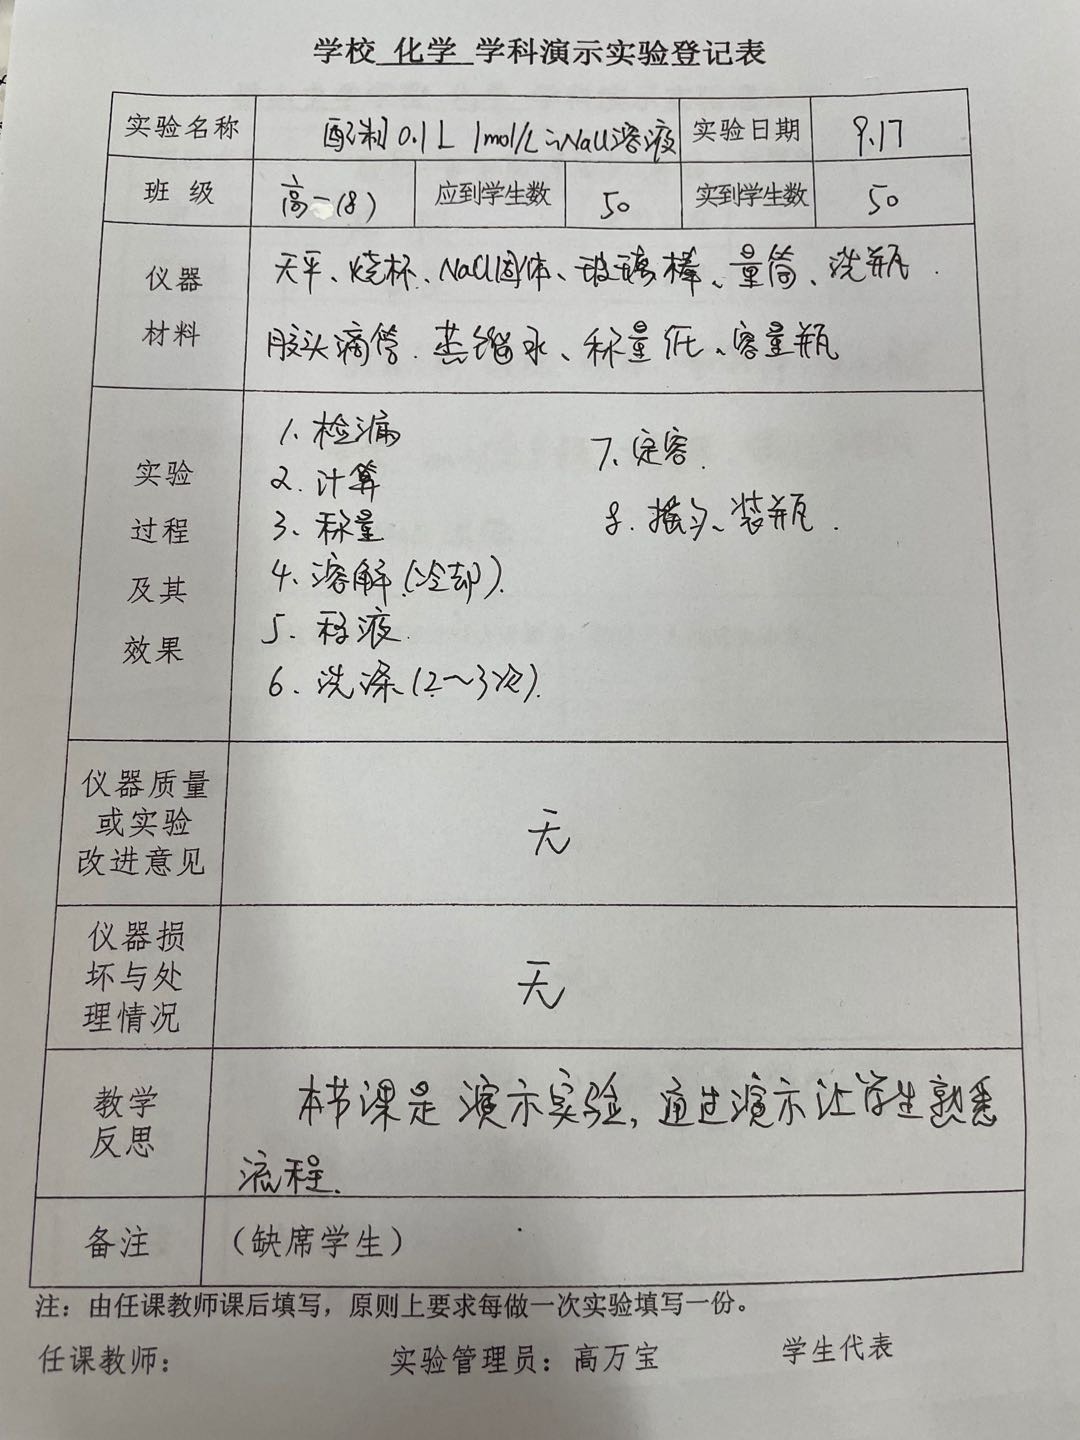 学校 化学 学科演示实验登记表
实验名称 配制0.1L 1mol/L的NaCl溶液 实验日期 9.17
班 级 高一(8) 应到学生数 50 实到学生数 50
仪器
材料
天平、烧杯、NaCl固体、玻璃棒、量筒、洗瓶.
胶头滴管.蒸馏水、称量纸、容量瓶
实验
过程
及其
效果
1、检漏
2.计算
3、称量
4、溶解.(冷却).
5、移液.
6、洗涤、(2~3次).
7、定容.
8.摇匀、装瓶.
仪器质量
或实验
改进意见
无
仪器损
坏与处
理情况
无
教学
反思
本节课是演示实验,通过演示让学生熟悉
流程.
备注 (缺席学生)
注:由任课教师课后填写,原则上要求每做一次实验填写一份。
任课教师: 实验管理员:高万宝 学生代表